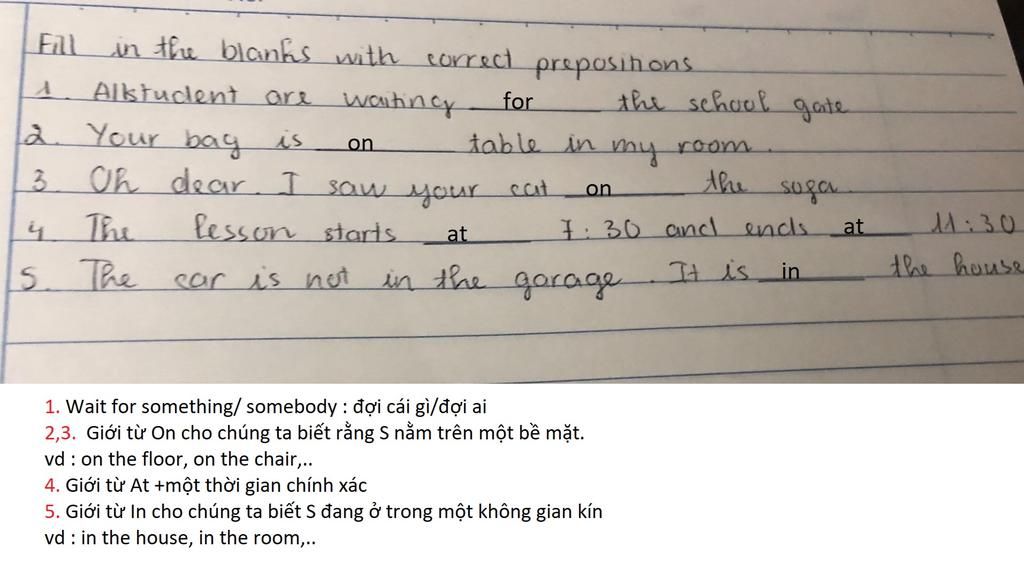 Fill in the blanks with correct prepositions
1. All student are waiting for the school gate
2. Your bag is on table in my room.
3. Oh dear. I saw your cat on the soga.
4. The lesson starts at 7:30 and ends at 11:30
5. The car is not in the garage. It is in the house
1. Wait for something/ somebody : đợi cái gì/đợi ai
2,3. Giới từ On cho chúng ta biết rằng S nằm trên một bề mặt.
vd : on the floor, on the chair,..
4. Giới từ At +một thời gian chính xác
5. Giới từ In cho chúng ta biết S đang ở trong một không gian kín
vd : in the house, in the room,..